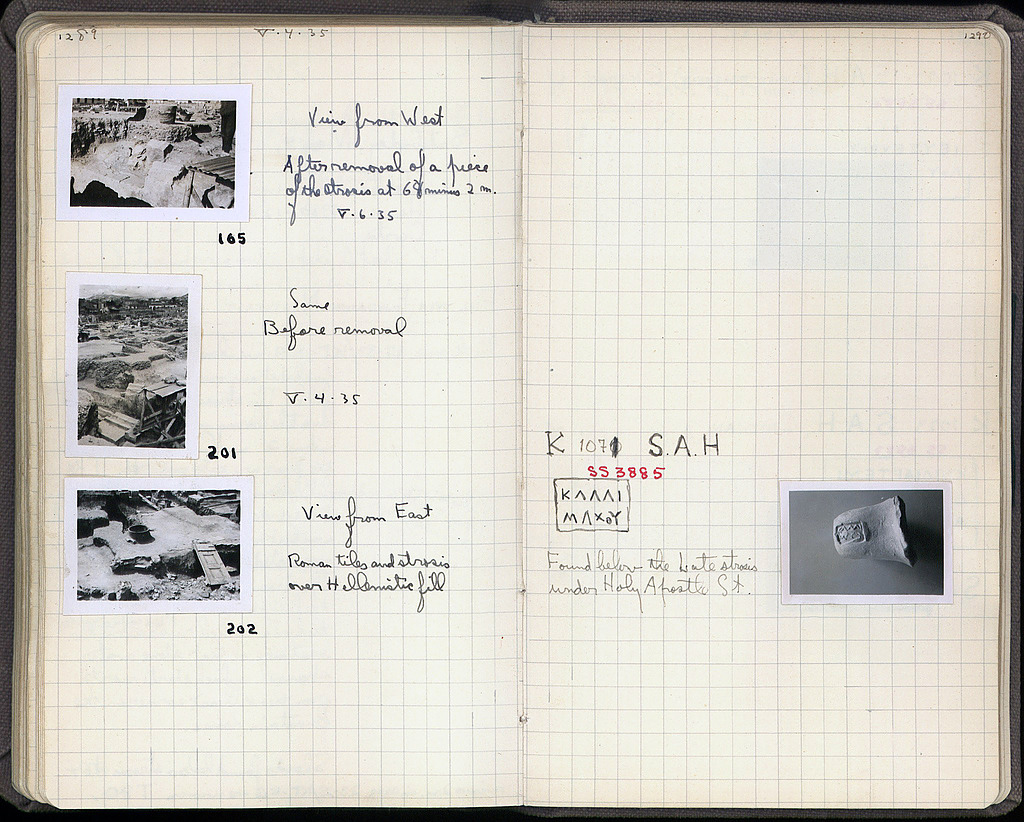 1289
V·4·35
View from West
After removal of a piece
of the strosis at 68 minus 2 m.
V·6·35
165
Same
Before removal
V·4·35
201
View from East
Roman tiles and strosis
over Hellenistic fill
202
1290
K 1071 S.A.H
SS 3885
ΚΛΛΛΙ
ΜΛΧοΥ
Found below the Late strosis
under Holy Apostle St.